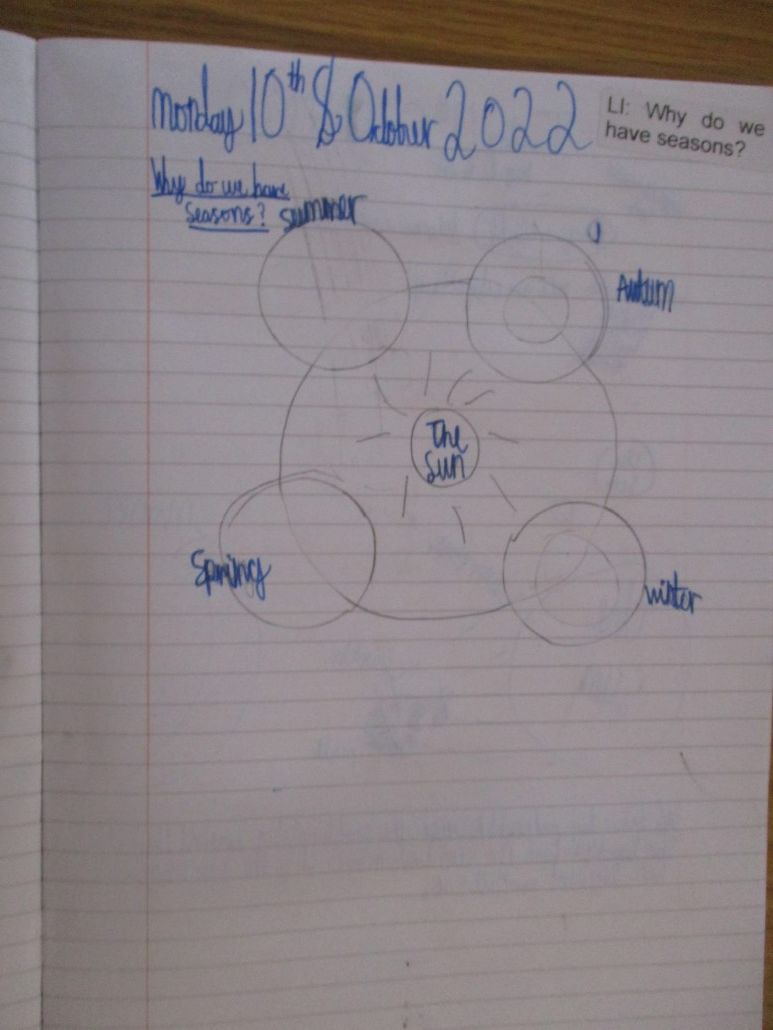 Monday 10th October 2022
LI: Why do we
have seasons?
Why do we have
seasons?
summer
Autum
The
Sun
Spring
winter